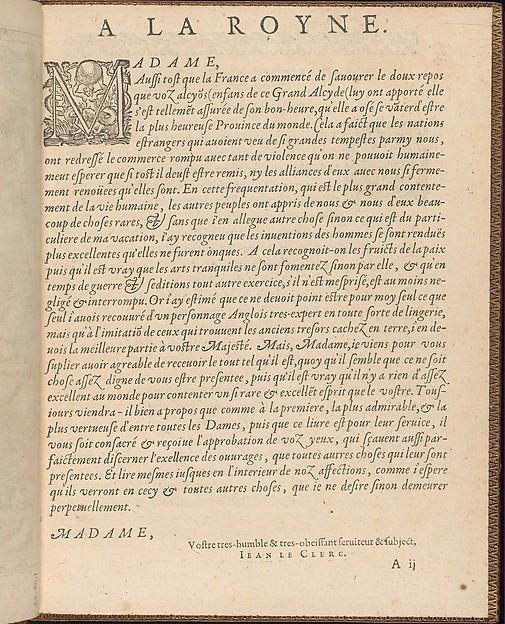 A LA ROYNE.
MADAME,
Aussi tost que la France a commencé de sauourer le doux repos
que voz alcyõs (enfans de ce Grand Alcyde) luy ont apporté elle
s'est tellemẽt assurée de son bon-heure, qu'elle a osé se vãter d'estre
la plus heureuse Prouince du monde. Cela a faict que les nations
estrangers qui auoient veu de si grandes tempestes parmy nous,
ont redressé le commerce rompu auec tant de violence qu'on ne pouuoit humaine-
meut esperer que si tost il deust estre remis, ny les alliances d'eux auec nous si ferme-
ment renoüees qu'elles sont. En cette frequentation, qui est le plus grand contente-
ment de la vie humaine, les autres peuples ont appris de nous & nous d'eux beau-
coup de choses rares, & sans que i'en allegue autre chose sinon ce qui est du parti-
culiere de ma vacation, i'ay recogneu que les inuentions des hommes se sont renduës
plus excellentes qu'elles ne furent onques. A cela recognoit-on les fruicts de la paix
puis qu'il est vray que les arts tranquiles ne sont fomentez sinon par elle, & qu'en
temps de guerre & seditions tout autre exercice, s'il n'est mesprisé, est au moins ne-
gligé & interrompu. Or i'ay estimé que ce ne deuoit point estre pour moy seul ce que
seul i'auois recouuré d'vn personnage Anglois tres-expert en toute sorte de lingerie,
mais qu'à l'imitatiõ de ceux qui trouuent les anciens tresors cachez en terre, i'en de-
uois la meilleure partie à vostre Majesté. Mais, Madame, ie viens pour vous
suplier auoir agreable de receuoir le tout tel qu'il est, quoy qu'il semble que ce ne soit
chose assez digne de vous estre presentee, puis qu'il est vray qu'il n'y a rien d'assez
excellent au monde pour contenter vn si rare & excellẽt esprit que le vostre. Tous-
iours viendra-il bien a propos que comme à la premiere, la plus admirable, & la
plus vertueuse d'entre toutes les Dames, puis que ce liure est pour leur seruice, il
vous soit consacré & reçoiue l'approbation de voz yeux, qui sçauent aussi par-
faictement discerner l'exellence des ouurages, que toutes autres choses qui leur sont
presentees. Et lire mesmes iusques en l'interieur de noz affections, comme i'espere
qu'ils verront en cecy & toutes autres choses, que ie ne desire sinon demeurer
perpetuellement.
MADAME,
Vostre tres-humble & tres-obeissant seruiteur & subject,
IEAN LE CLERC.
A ij